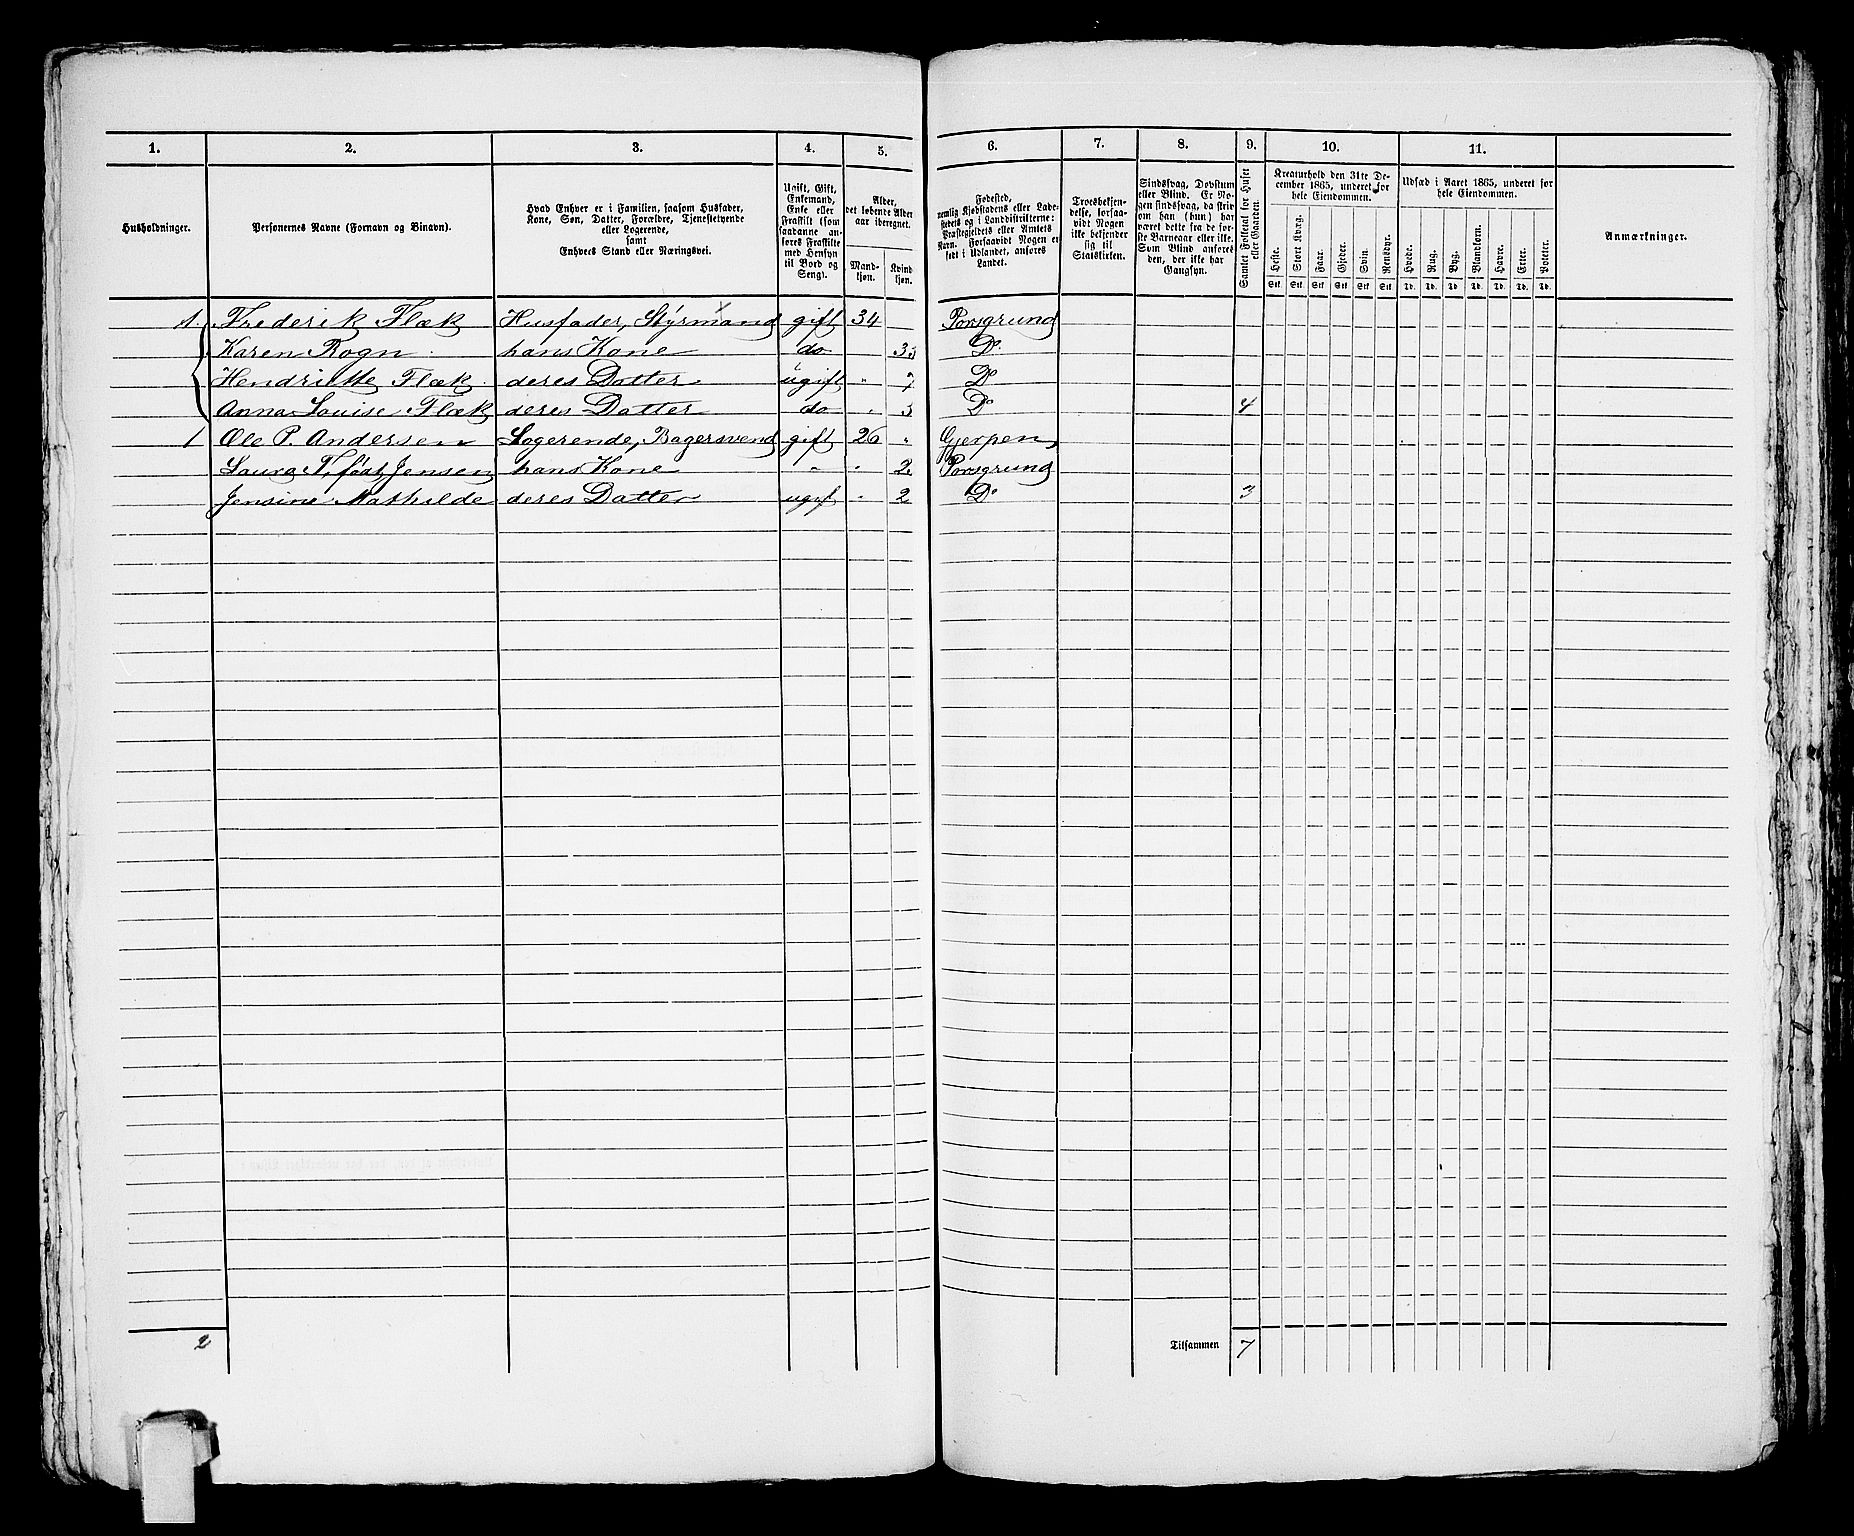 1. 2. 3. 4. 5. 6. 7. 8. 9. 10. 11.
Husholdninger.
Personernes Navne (Fornavn og Binavn).
Hvad Enhver er i Familien, saasom Husfader,
Kone, Søn, Datter, Forældre, Tjenestetyende
eller Logerende,
samt
Enhvers Stand eller Næringsvei.
Ugift, Gift,
Enkemand,
Enke eller
Fraskilt (som
saadanne an-
føres Fraskilte
med Hensyn
til Bord og
Seng).
Alder,
det løbende Alder
aar iberegnet.
Mand-
kjøn.
Kvind
kjøn.
Fødested,
nemlig Kjøbstadens eller Lade-
stedets og i Landdistrikterne:
Præstegjeldets eller Amtets
Navn. Forsaavidt Nogen er
født i Udlandet, anføres
Landet.
Troesbekjen-
delse, forsaa-
vidt Nogen
ikke bekjender
sig til
Statskirken.
Sindssvag, Døvstum
eller Blind. Er No-
gen sindssvag, da skriv
om han (hun) har
været dette fra de før-
ste Barneaar eller ikke.
Som Blind anføres
den, der ikke har
Gangsyn.
Samlet Folketal for Huset
eller Gaarden.
Kreaturhold den 31te De-
cember 1865, underet for
hele Eiendommen.
Heste. Stort Kvæg. Faar. Gjeder. Svin. Rensdyr.
Stk. Stk. Stk. Stk. Stk. Stk.
Udsæd i Aaret 1865, underet for
hele Eiendommen.
Hvede. Rug. Byg. Blandkorn. Havre. Erter. Poteter.
Td. Td. Td. Td. Td. Td. Td.
Anmærkninger.
1. Frederik Flæk Husfader, Styrmand gift 34 Porsgrund
Karen Rogn hans Kone do D°
Henriette Flæk deres Datter ugift " 7 D°
Anna Louise Flæk deres Datter do " D° 4
1 Ole P. Andersen Logerende, Bagersvend gift 26 " Gjerpen
Laura T. født Jensen hans Kone " " Porsgrund
Jensine Mathilde deres Datter ugift " 2 D° 3
2 Tilsammen 7